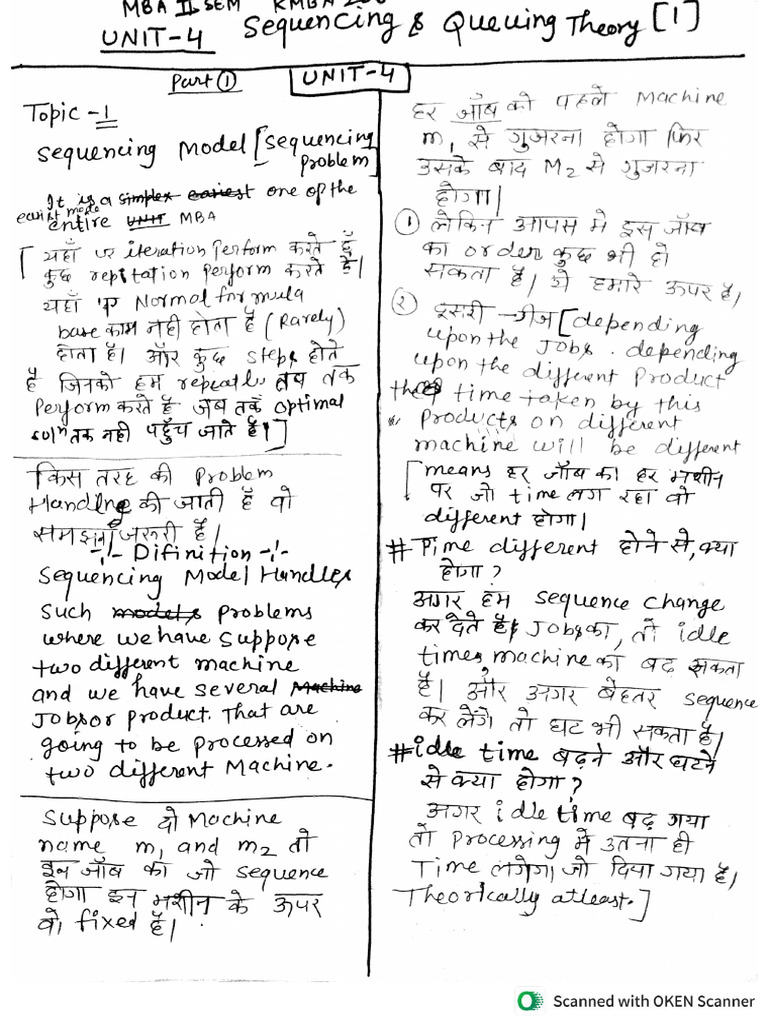 MBA II SEM KMBN
UNIT-4 Sequencing & Queuing Theory [1]
Part ① UNIT-4
Topic -1
Sequencing Model [Sequencing
problem]
It is a simplex easiest one of the
easist mode
entire UNIT MBA
[ यहाँ पर iteration perform करते हैं
कुछ repitation perform करते हैं।
यहाँ पर Normal formula
base काम नही होता है (Rarely)
होता है। और कुछ steps होते
है जिनको हम repeatly तब तक
Perform करते है जब तक optimal
soln तक नही पहुँच जाते है।]
किस तरह की Problem
Handlng की जाती है वो
समझना जरूरी है।
-:- Difinition -:-
Sequencing Model Handles
Such models Problems
where we have suppose
two different machine
and we have several Machine
Jobs or product. That are
going to be processed on
two different Machine.
Suppose दो Machine
name m1 and m2 तो
इन जॉब का जो sequence
होगा इन मशीन के ऊपर
वो fixed है।
हर जॉब को पहले Machine
m1 से गुजरना होगा फिर
उसके बाद M2 से गुजरना
होगा।
① लेकिन आपस मे इस जॉब
का order कुछ भी हो
सकता है। ये हमारे ऊपर है।
② दूसरी चीज [depending
upon the Jobs. depending
upon the different Product
the time taken by this
Products on different
machine will be different
[means हर जॉब का हर मशीन
पर जो time लग रहा वो
different होगा।
# Time different होने से, क्या
होगा?
अगर हम sequence change
कर देते है। Jobs का, तो idle
times machine का बढ़ सकता
है। और अगर बेहतर sequence
कर लेंगे तो घट भी सकता है।
# idle time बढ़ने और घटने
से क्या होगा?
अगर idle time बढ़ गया
तो Processing मे उतना ही
Time लगेगा जो दिया गया है।
Theorically atleast.]
Scanned with OKEN Scanner